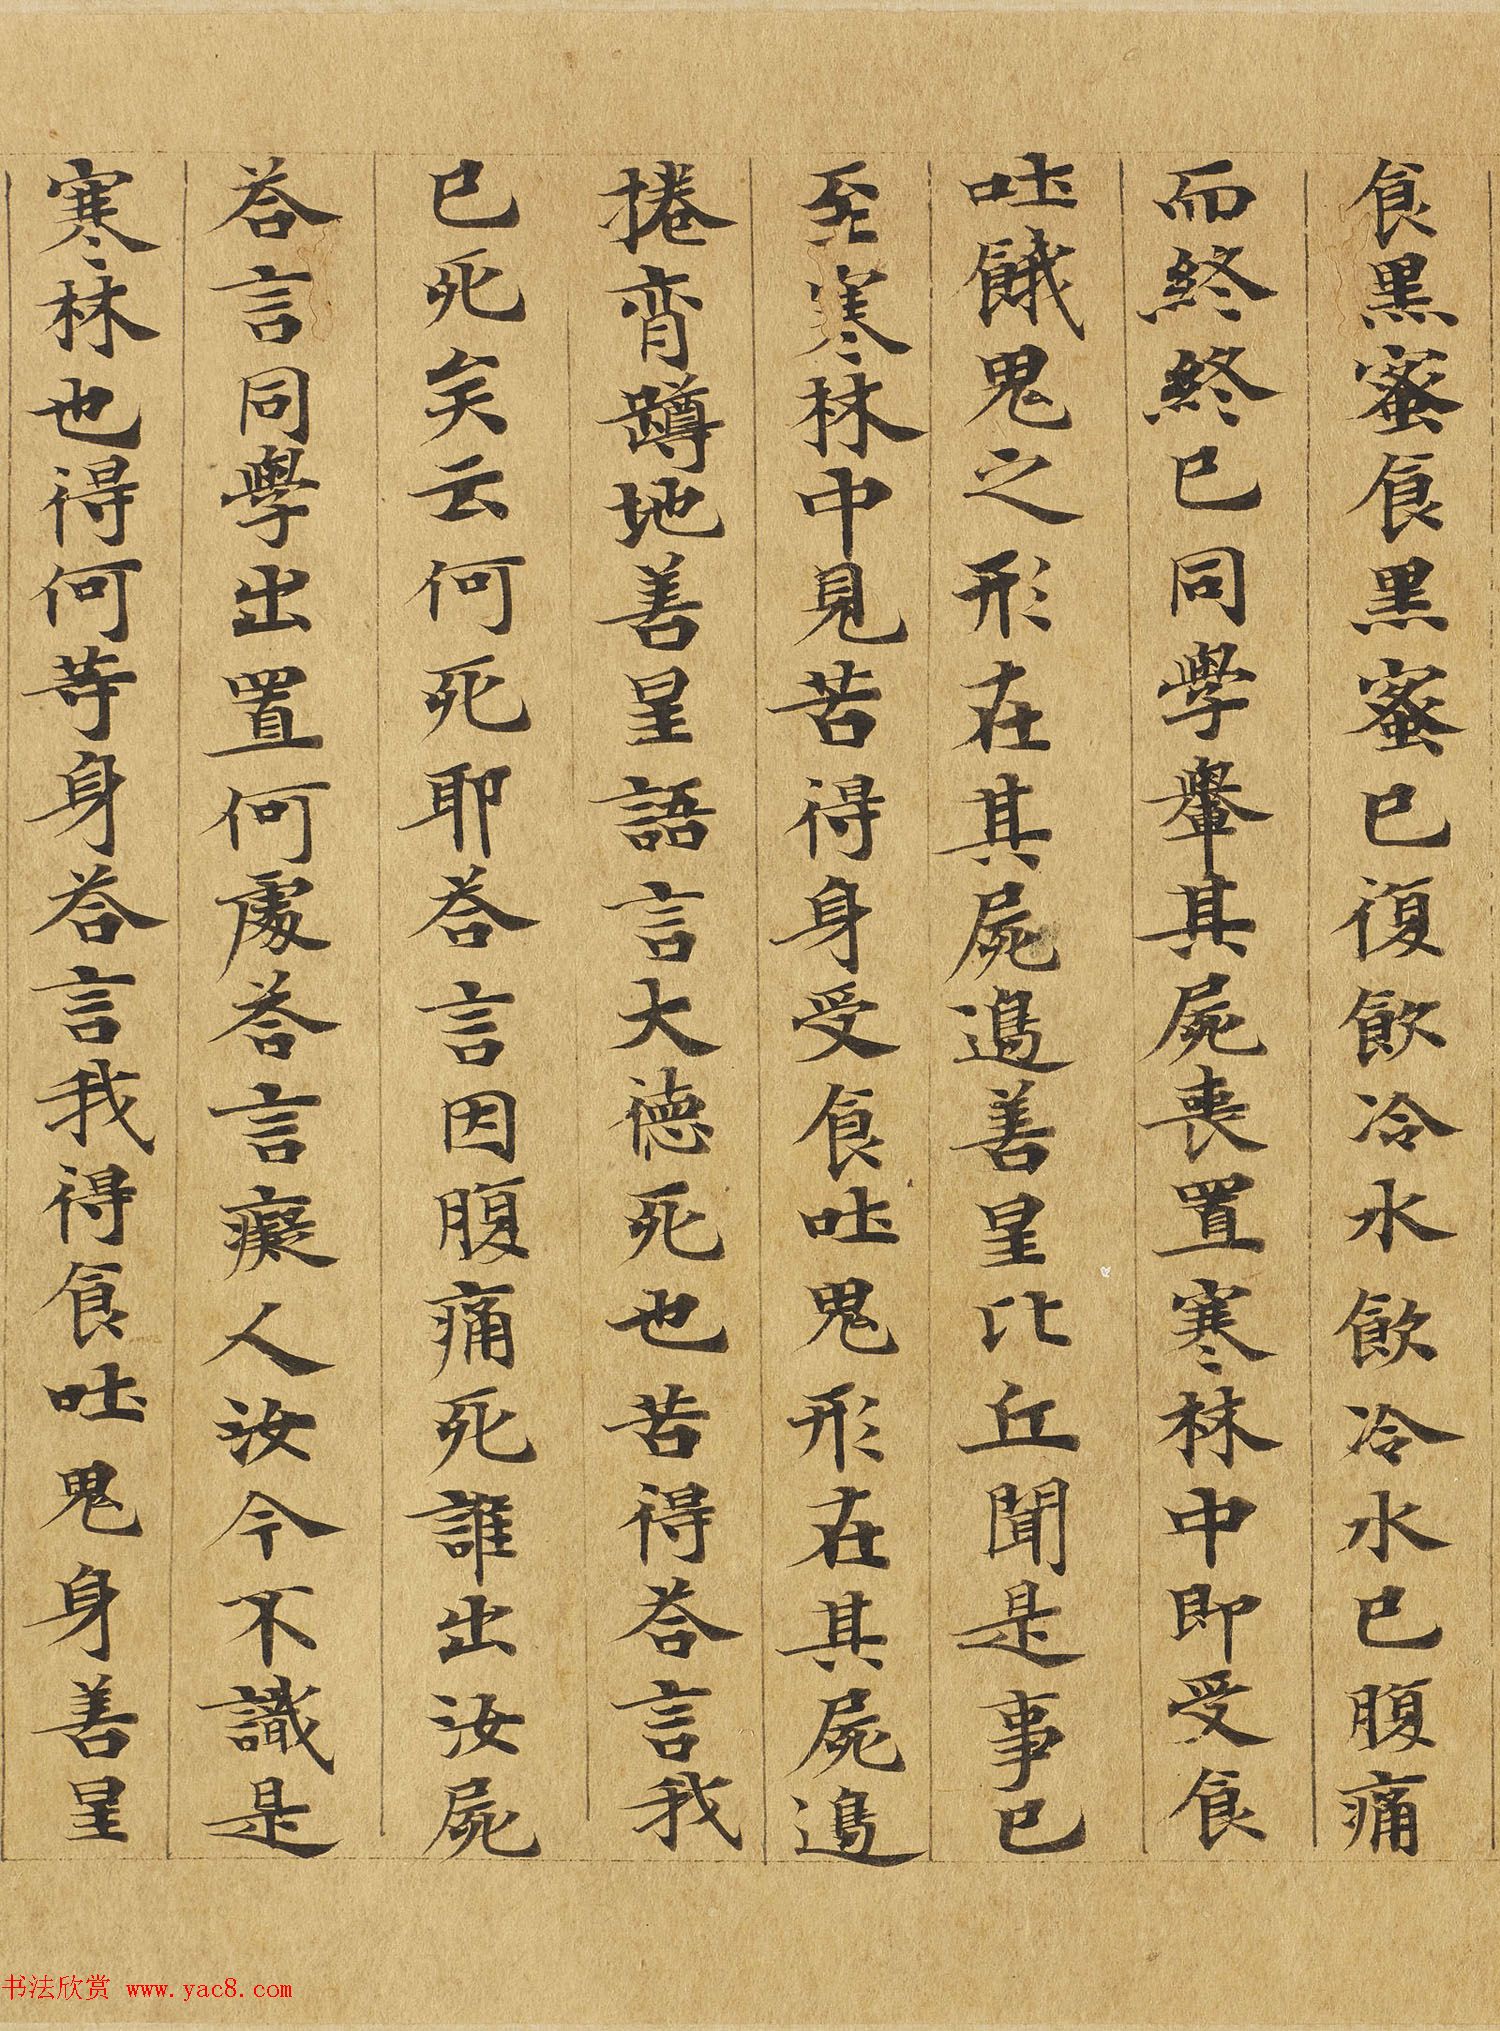 食黑蜜食黑蜜已復飲冷水飲冷水已腹痛
而終終已同學轝其屍喪置寒林中即受食
吐餓鬼之形在其屍邊善星比丘聞是事已
至寒林中見苦得身受食吐鬼形在其屍邊
捲脊蹲地善星語言大德死也苦得答言我
已死矣云何死耶答言因腹痛死誰出汝屍
答言同學出置何處答言癡人汝今不識是
寒林也得何等身答言我得食吐鬼身善星
书法欣赏 www.yac8.com